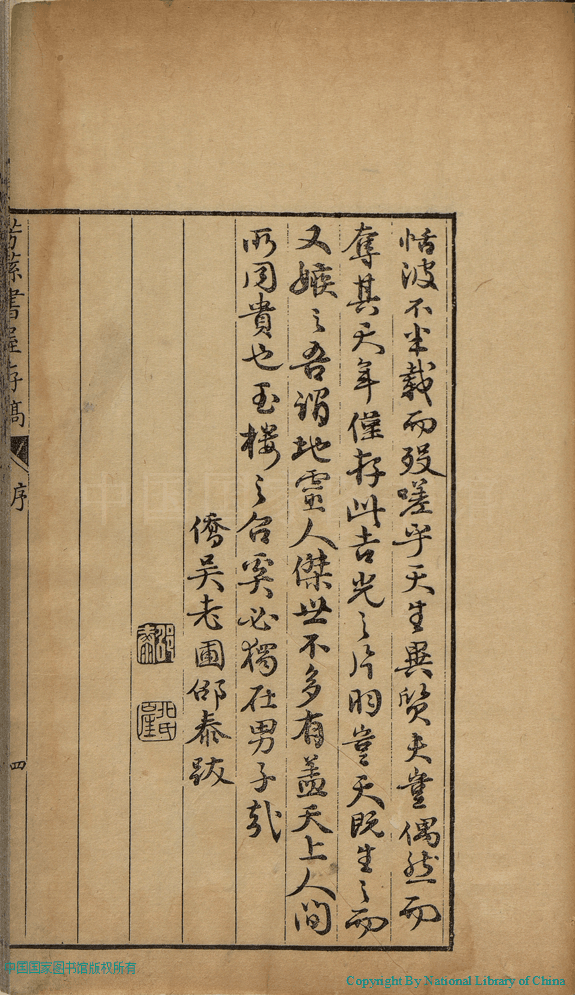 恬波不半載而歿嗟乎天生異質夫豈偶然而
奪其天年僅存此吉光之片羽豈天既生之而
又嫉之吾謂地靈人傑世不多有蓋天上人間
所同貴也玉樓之召奚必獨在男子哉
僑吳老圃邵泰跋
邵泰
北厓
芳蓀書屋存稿
序
四
中国国家图书馆版权所有
Copyright By National Library of China